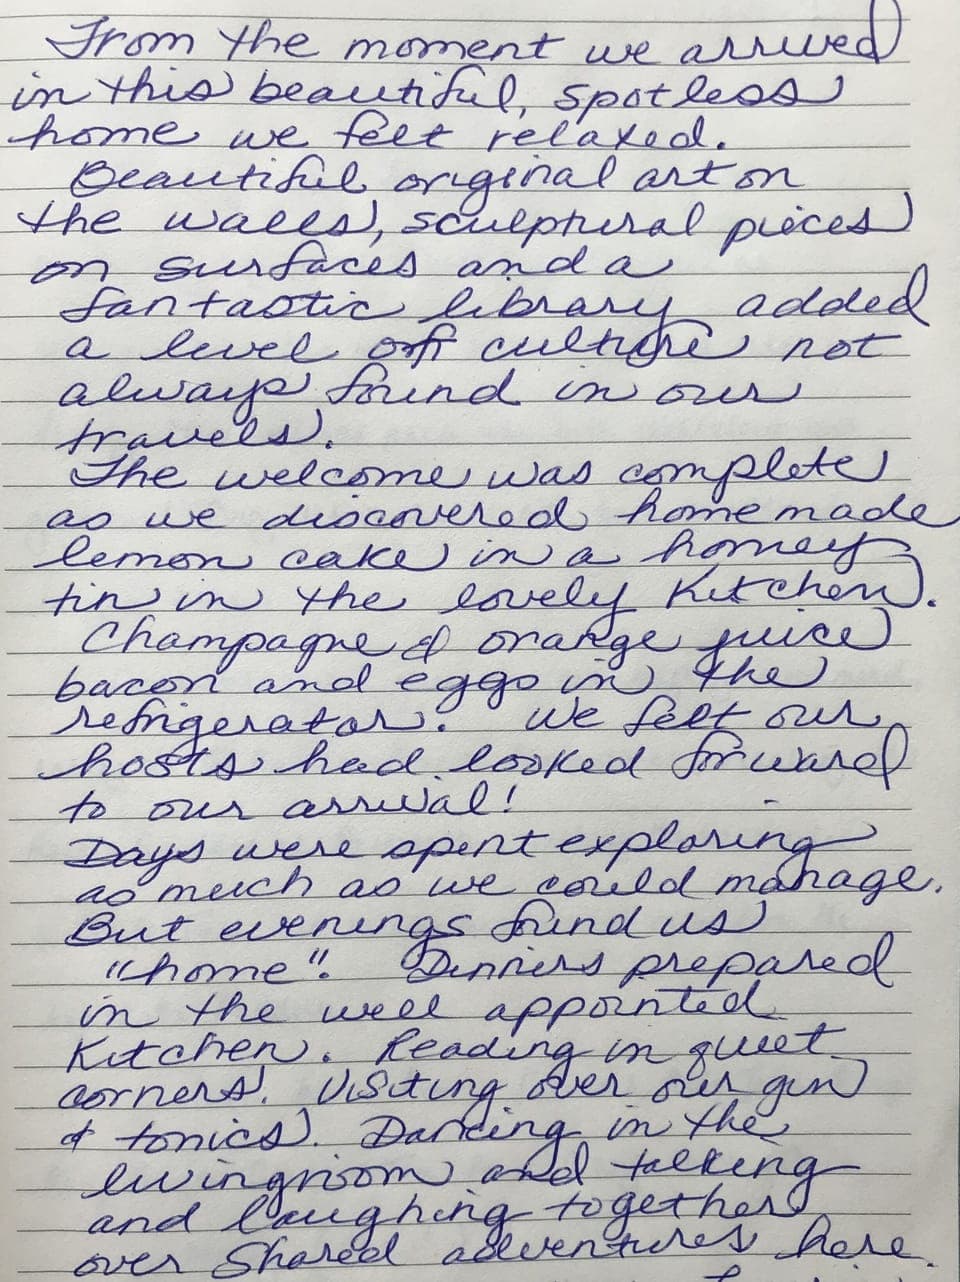 From the moment we arrived
in this beautiful, spotless
home we felt relaxed.
Beautiful original art on
the walls, sculptural pieces
on surfaces and a
fantastic library added
a level of culture not
always found in our
travels.
The welcome was complete
as we discovered homemade
lemon cake in a homey
tin in the lovely kitchen.
Champagne & orange juice
bacon and eggs in the
refrigerator. We felt our
hosts had looked forward
to our arrival!
Days were spent exploring
as much as we could manage.
But evenings found us
"home". Dinners prepared
in the well appointed
kitchen. Reading in quiet
corners. Visiting over our gin
& tonics. Dancing in the
livingroom and talking
and laughing together
over shared adventures here